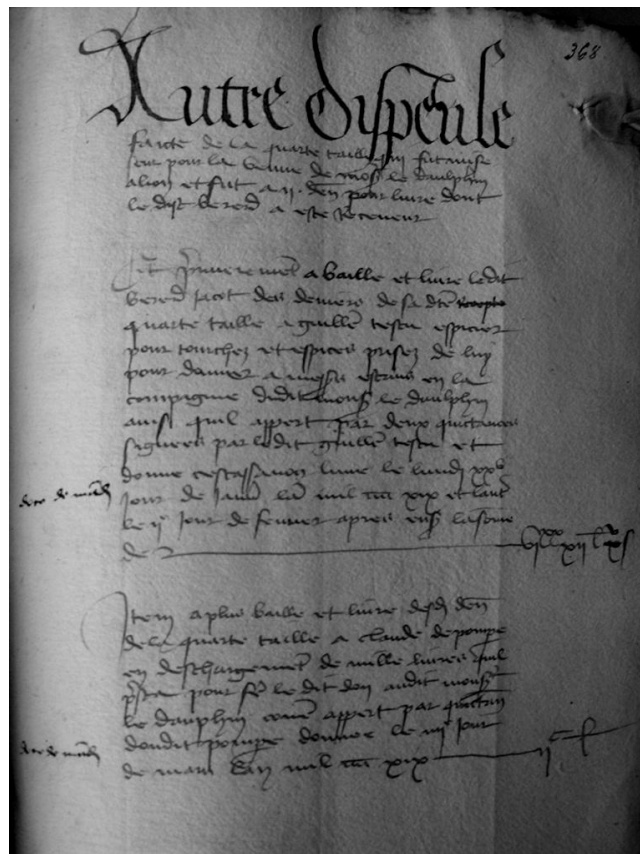 368
Autre despense
faicte de la quarte taille qui fut mise
sur pour la venue de mosr le daulphin
alion et fut a ii den pour livre dont
le dist bererd a este Receveur
It primierement a baille et livre ledit
bererd jacot des deniers de sa dte recepte
quarte taille a guille testu espicier
pour tourchez et espices prises de luy
pour donner a messrs estans en la
compagnie dudit mons le daulphin
ainsi quil appert par deux quictances
signees par ledit guille testu et
donne lune le lundi xxv
jour de janv lan mil cccc xix et laut
le ii jour de fevrier apres ens la some
de
Item a plus baille et livre desd den
de la quarte taille a claude de pompe
en deschargement de mille livres quil
presta pour fe le dit don audit mons
le daulphin come appert par quictan
dondit pompe donnee le iii jour
de mars lan mil cccc xix ii c l